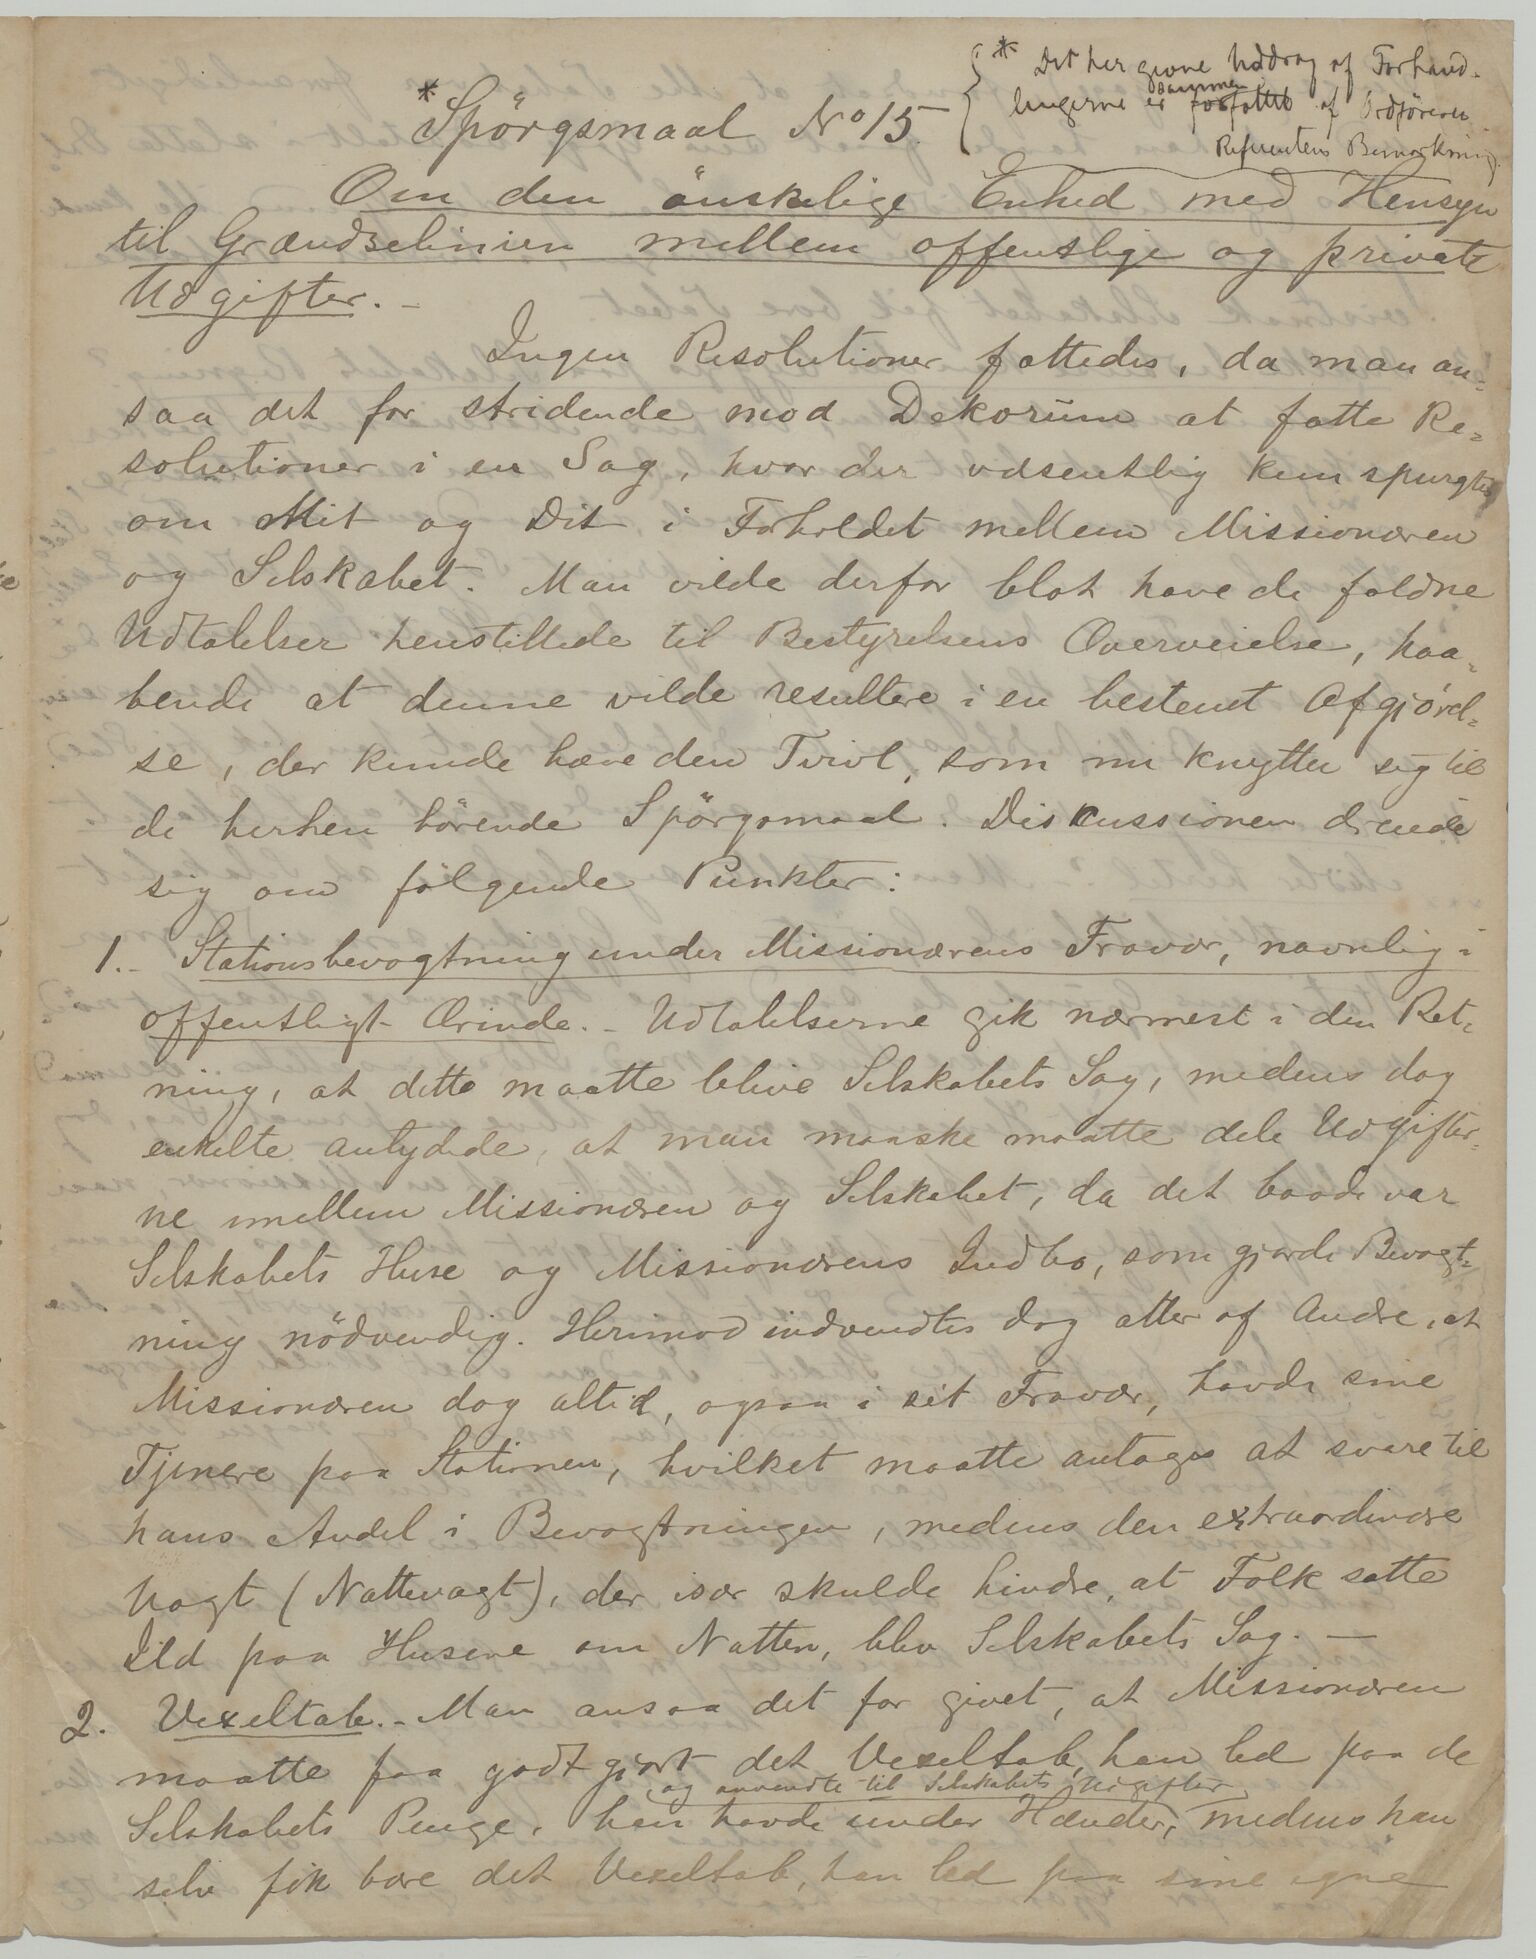 * Det her givne Uddrag af Forhand-
lingerne er sammenfattet af Ordføreren
Referentens Bemærkning.
*Spörgsmaal No 15.
Om den önskelige Enhed med Hensyn
til Grændselinien mellem offentlige og private
Udgifter. -
Ingen Resolutioner fattedes, da man an-
saa det for stridende mod Dekorum at fatte Re-
solutioner i en Sag, hvor der væsentlig kun spurgtes
om Mit og Dit i Forholdet mellem Missionæren
og Selskabet. Man vilde derfor blot have de faldne
Udtalelser henstillede til Bestyrelsens Overveielse, haa-
bende at denne vilde resultere i en bestemt Afgjörel-
se, der kunde hæve den Tvivl, som nu knytter sig til
de herhen hörende Spörgsmaal. Diskussionen dreiede
sig om fölgende Punkter:
1. - Stationsbevogtning under Missionærens Fravær, navnlig i
offentligt Ærinde. - Udtalelserne gik nærmest i den Ret-
ning, at dette maatte blive Selskabets Sag, medens dog
enkelte antydede, at man maaske maatte dele Udgifter-
ne imellem Missionæren og Selskabet, da det baade var
Selskabets Huse og Missionærens Indbo, som gjorde Bevogt-
ning nödvendig. Herimod indvendtes dog atter af Andre, at
Missionæren dog altid, ogsaa i sit Fravær, havde sine
Tjenere paa Stationen, hvilket maatte antages at svare til
hans Andel i Bevogtningen, medens den extraordinære
Vagt (Nattevagt), der især skulde hindre, at Folk satte
Ild paa Husene om Natten, blev Selskabets Sag. -
2. Vexeltab. - Man ansaa det for givet, at Missionæren
maatte faa godtgjort det Vexeltab, han led paa de
og anvendte til Selskabets Udgifter
Selskabets Penge, han havde under Hænder, medens han
selv fik bære det Vexeltab, han led paa sine egne